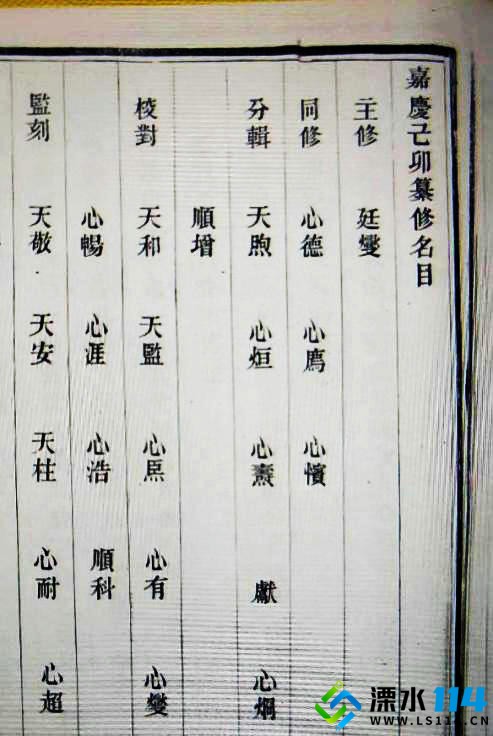 嘉慶己卯纂修名目
主修 廷燮
同修 心德 心鳫 心懫
分輯 天煦 心烜 心燾 獻 心烱
順增
校對 天和 天監 心㷩 心有 心燮
心暢 心涯 心浩 順科
監刻 天敬 天安 天柱 心耐 心超
溧水114
WWW.LS114.CN